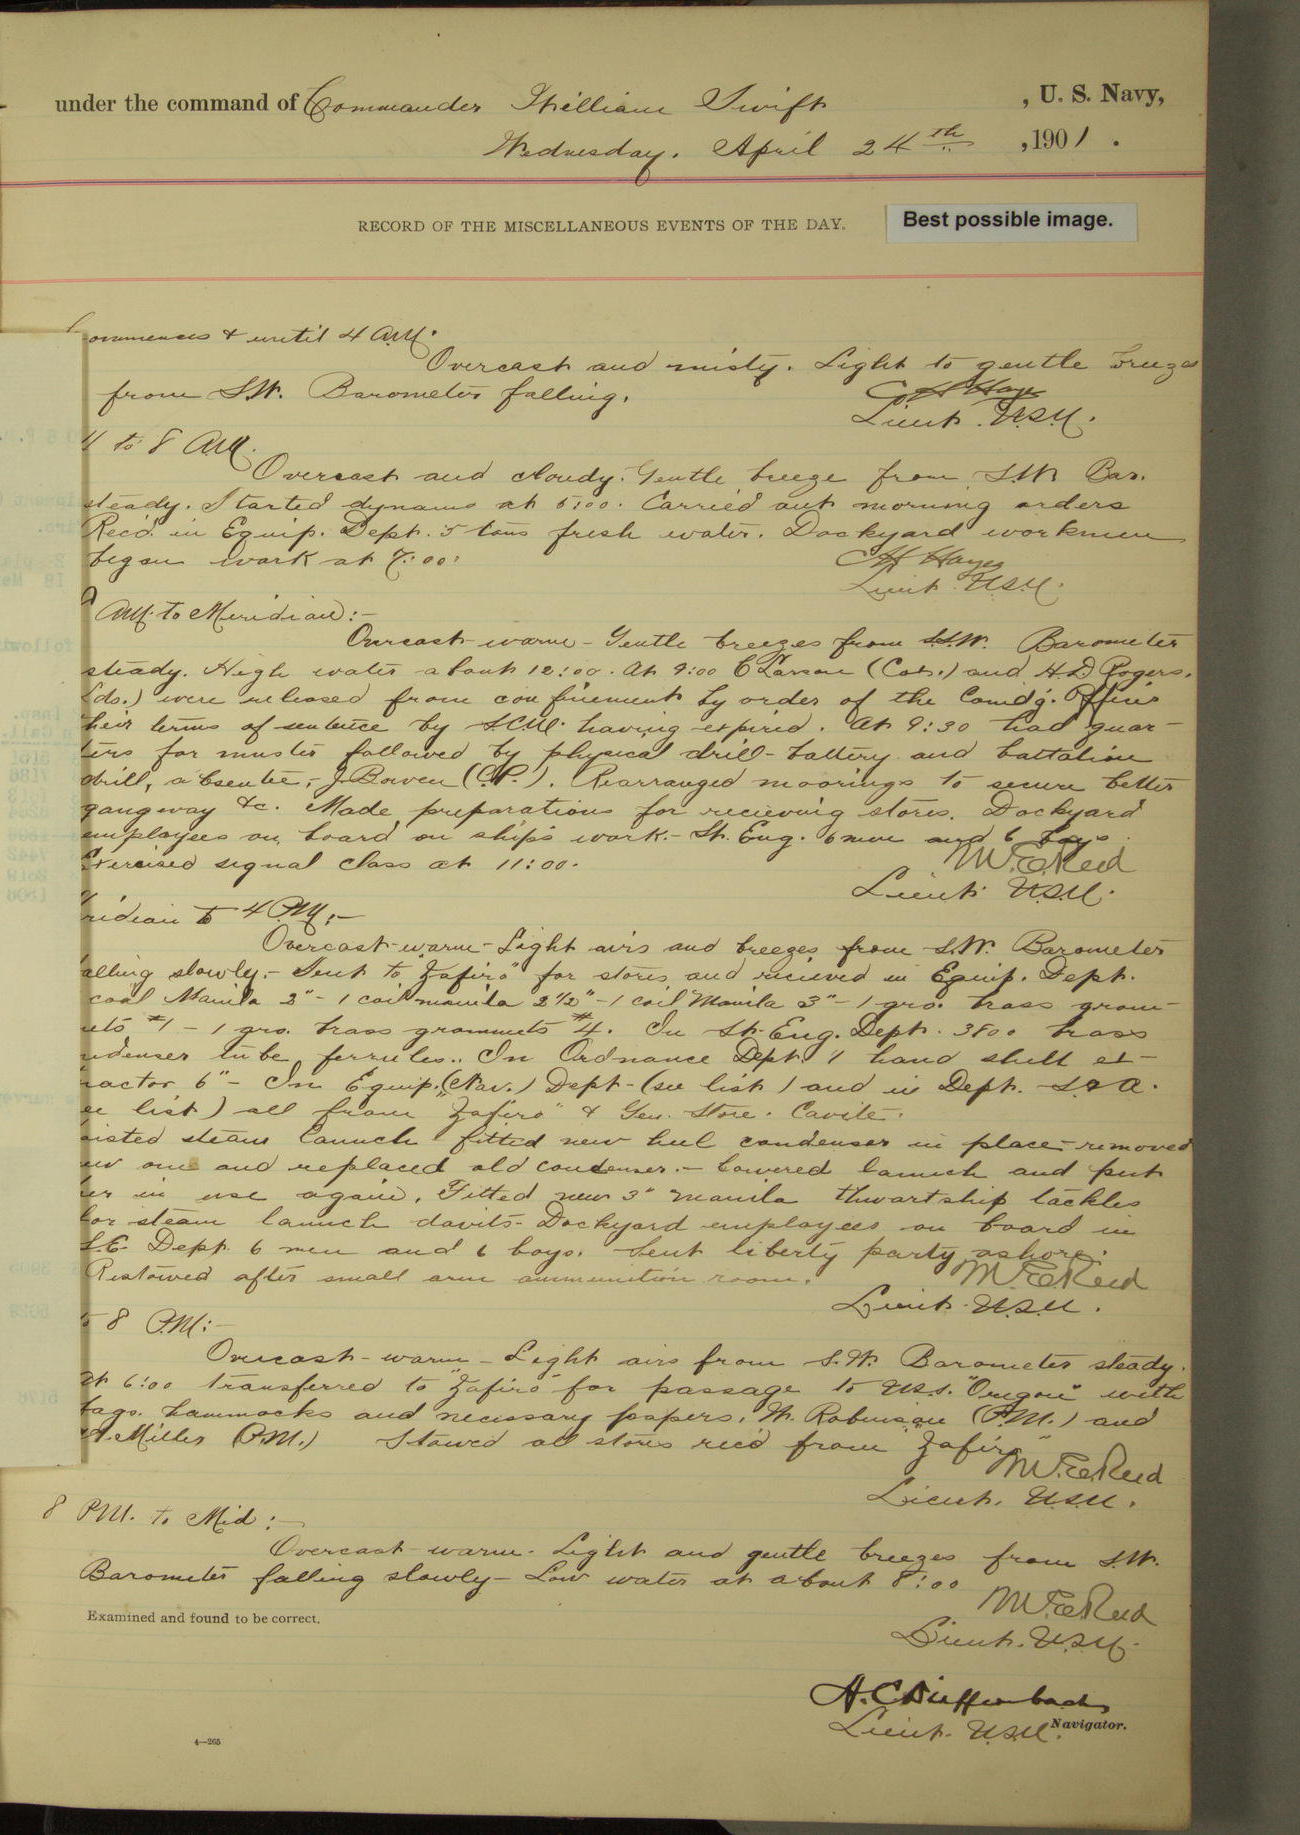 under the command of Commander William Swift , U. S. Navy,
Wednesday. April 24th , 1901 .
RECORD OF THE MISCELLANEOUS EVENTS OF THE DAY.
Best possible image.
ommences & until 4 AM.
Overcast and misty. Light to gentle breezes
from S.W. Barometer falling.
C H Hayes
Lieut. U.S.N.
4 to 8 AM.
Overcast and cloudy. Gentle breeze from S.W. Bar.
steady. Started dynamo at 5:00. Carried out morning orders
Rec'd in Equip. Dept. 5 tons fresh water. Dockyard workmen
began work at 7:00.
CH Hayes
Lieut. U.S.N.
AM. to Meridian:-
Overcast-warm-Gentle breezes from S.S.W. Barometer
steady. High water about 12:00. At 9:00 C Larson (Cox.) and H.D Rogers.
(do.) were released from confinement by order of the Comd'g. Officer
their terms of sentence by S.C.M. having expired. At 9:30 had quar-
ters for muster followed by physical drill-battery and battalion
drill, absentee, J Bowen (C.P.). Rearranged moorings to secure better
gangway &c. Made preparations for recieving stores. Dockyard
employees on board on ship's work.- St. Eng. 6 men and 6 boys.
Exercised signal class at 11:00.
W.E.Reed
Lieut. U.S.N.
ridian to 4 PM:-
Overcast-warm-Light airs and breezes from S.W. Barometer
alling slowly.- Sent to "Zafiro" for stores and recieved in Equip. Dept.
coal Manila 2"- 1 coil manila 2½"- 1 coil Manila 3"- 1 gro. brass grom-
ets #1 - 1 gro. brass grommets #4. In St. Eng. Dept. 3800 brass
ndenser tube ferrules.. In Ordnance Dept. 1 hand shell ex-
ractor 6"- In Equip. (Nav.) Dept- (see list) and in Dept. S. & A.
ee list) all from "Zafiro" & Gen. Store. Cavite.
oisted steam launch fitted new keel condenser in place-removed
ew one and replaced old condenser.- Lowered launch and put
her in use again. Fitted new 3" manila thwartship tackles
for steam launch davits- Dockyard employees on board in
S.E. Dept. 6 men and 6 boys. Sent liberty party ashore.
Restowed after small arm ammunition room.
W.E.Reed
Lieut. U.S.N.
to 8 P.M:-
Overcast-warm-Light airs from S.W. Barometer steady.
At 6:00 transferred to "Zafiro" for passage to U.S.S. "Oregon" with
bags. hammocks and necessary papers, W. Robinson (P.M.) and
A. Miller (P.M.) Stowed all stores rec'd from "Zafiro"
W.E.Reed
Lieut. U.S.N.
8 P.M. to Mid:-
Overcast-warm. Light and gentle breezes from S.W.
Barometer falling slowly- Low water at about 8:00
W.E.Reed
Lieut. U.S.N.
Examined and found to be correct.
H.C Dieffenbach
Lieut. U.S.N. Navigator.
4—265